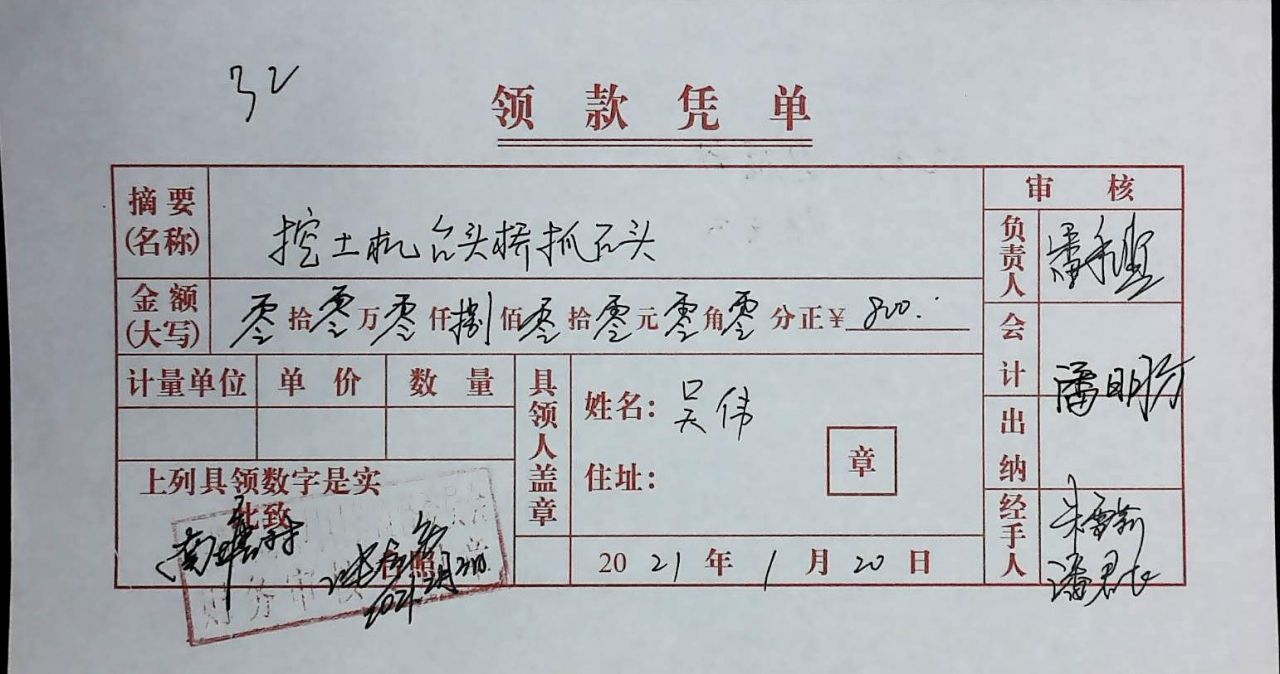 32
领款凭单
摘要(名称) 挖土机台头桥抓石头
审核
负责人 潘
金额(大写) 零拾零万零仟捌佰零拾零元零角零分正¥800.
会计 潘明
计量单位 单价 数量
具领人盖章
姓名：吴伟
住址：
章
出纳
上列具领数字是实
此致
台照
2021年1月20日
经手人 朱
潘君
财务审